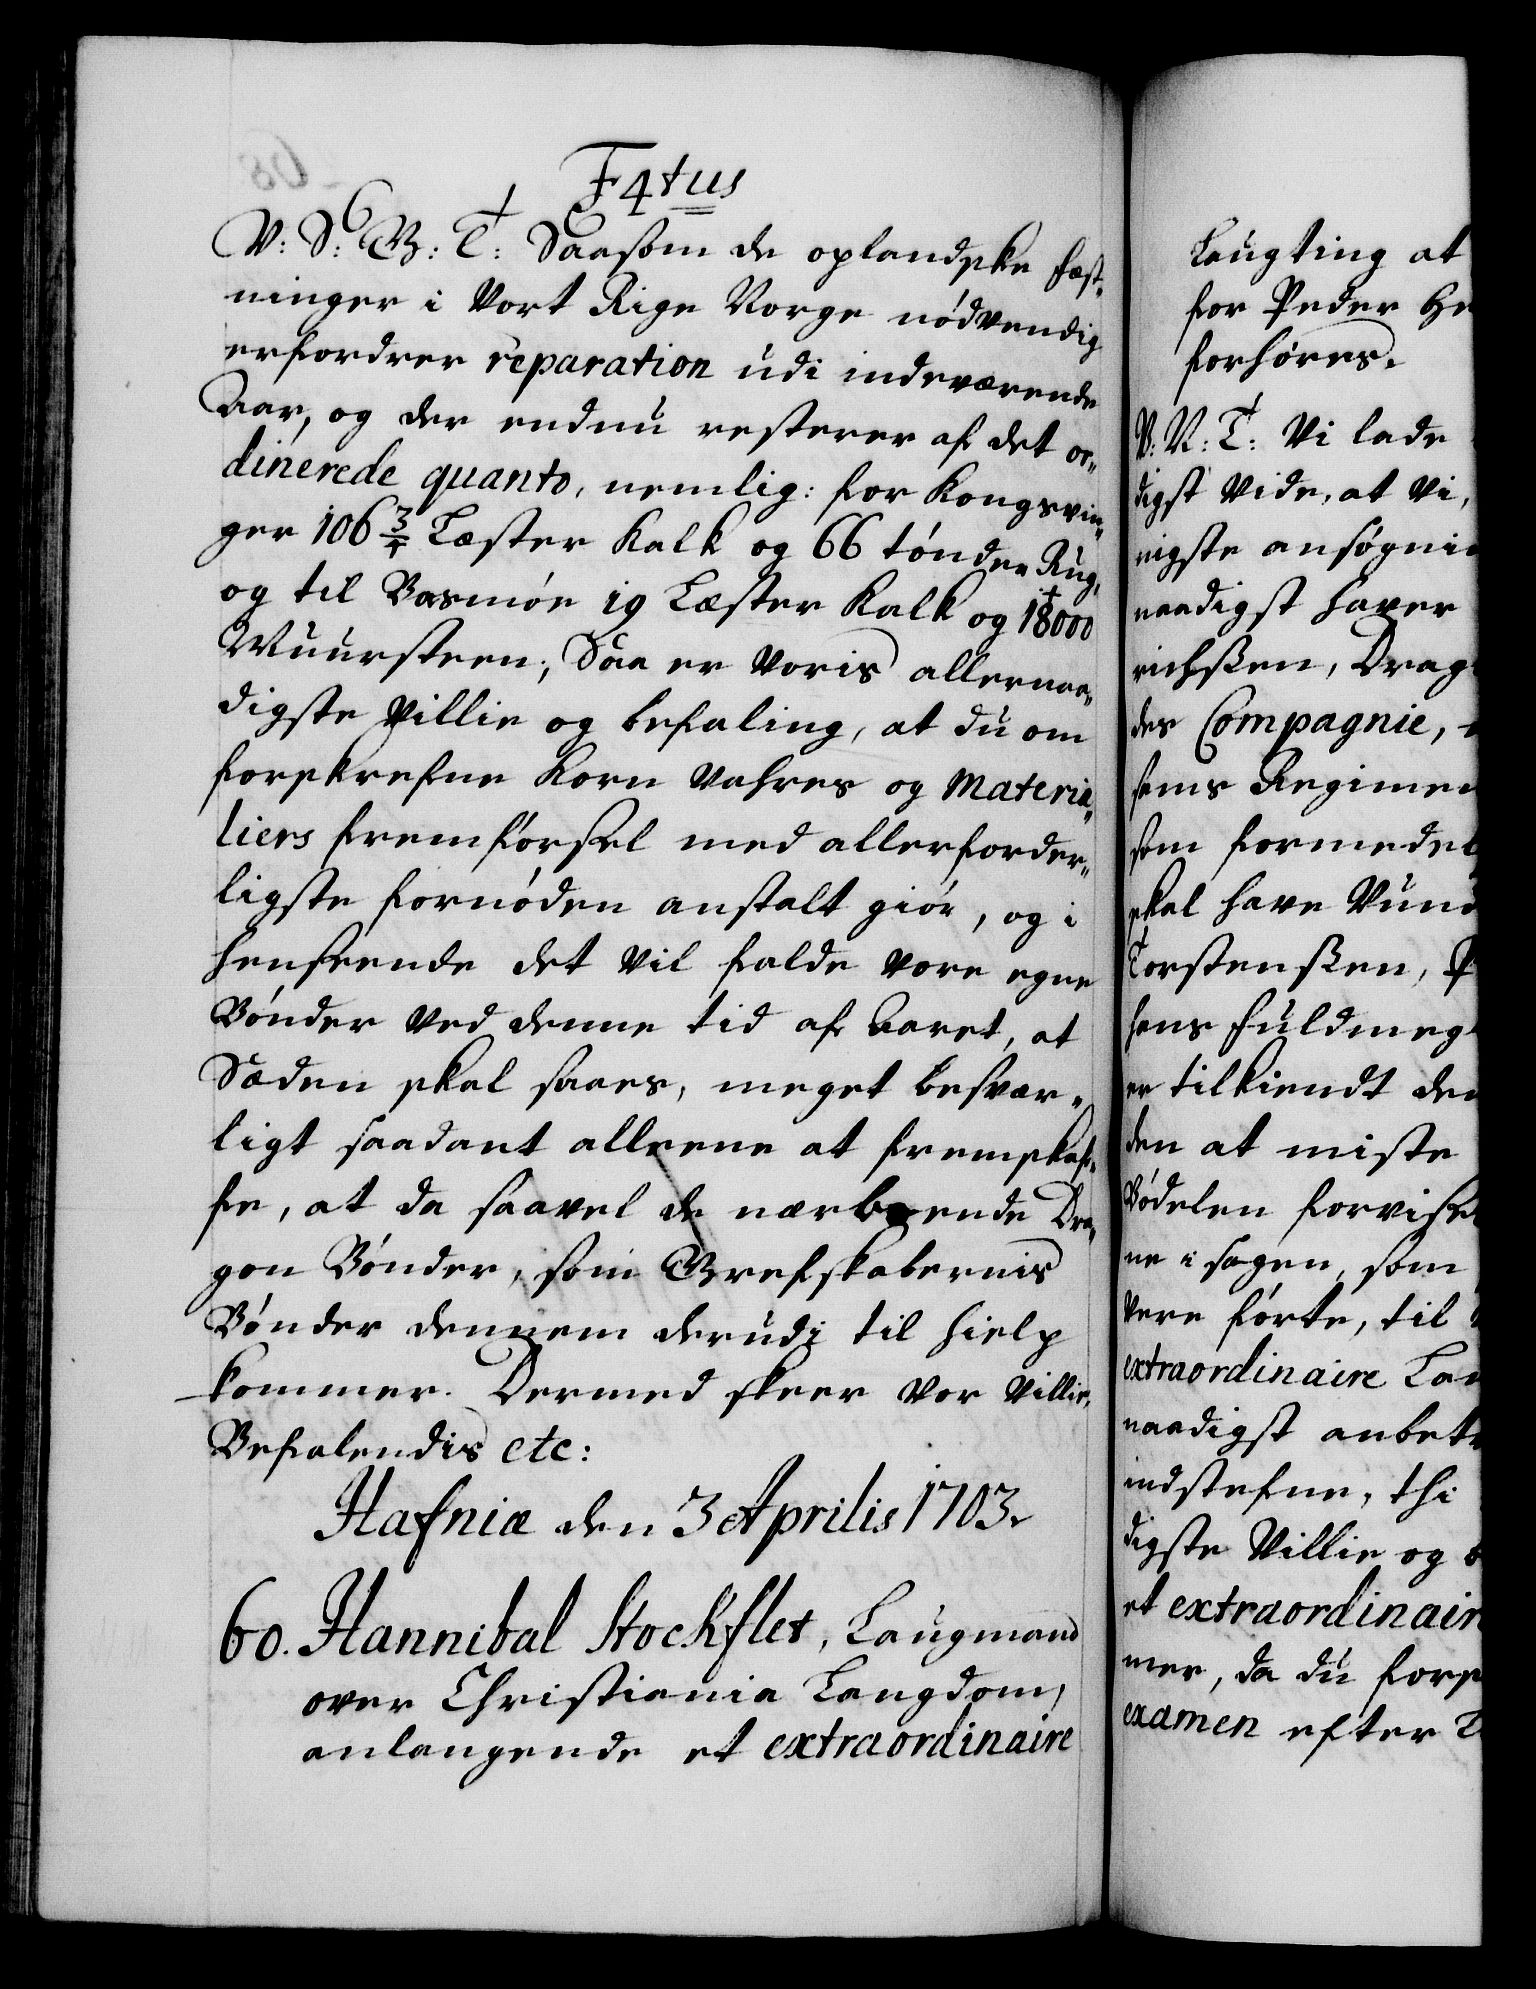 F4tus
V: S: G: T: Saasom de oplandske Fæst-
ninger i Vort Rige Norge nödvendig
erfordrer reparation udi indeværende
Aar, og der endnu resterer af det or-
dinerede quanto, nemlig: for Kongsvin-
ger 106 3/4 Læster Kalk og 66 tönder Rug,
og til Basmöe 19 Læster Kalk og 18000
Muursteen; Saa er Voris allernaa-
digste Villie og befaling, at du om
forskrefne Korn Vahres og Materia-
liers fremförsel med allerforder-
ligste fornöden anstalt giör, og i
henseende det vil falde vore egne
Bönder ved denne tid af Aaret, at
Sæden skal saaes, meget besvær-
ligt saadant alleene at fremskaf-
fe, at da saavel de nærboende Dra-
gon Bönder, som Grefskabernis
Bönder dennem derudi til hielp
kommer. Dermed skeer Vor Villie.
Befalendis etc:
Hafniæ den 3 Aprilis 1703.
60. Hannibal Stockflet, Laugmand
over Christiania Laugdom,
anlangende et extraordinaire
Laugting at
for Peder He
forhöres.
V: N: T: Vi lade
digst Vide, at Vi,
rigste ansögni
naadigst haver
richßen, Drag
des Compagnie,
hems Regimen
som formedel
skal have Vund
Torstenßen, P
hans fuldmeg
er tilkiendt den
den at miste
Bödelen forvise
ne i sagen, som
vere förte, til
extraordinaire Lau
naadigst anbet
indstefne, thi
digste Villie og b
et extraordinair
mer, da du fors
examen efter L